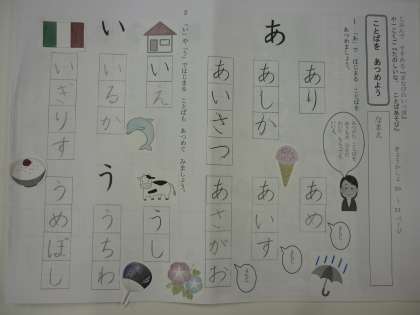 ことばを　あつめよう
なまえ
1　「あ」で　はじまる　ことばを
あつめましょう。
あ
あり
あしか
あいさつ
あめ
あいす
あさがお
2　「い」や「う」で　はじまる　ことばも　あつめて　みましょう。
い
いえ
いるか
いぎりす
う
うし
うちわ
うめぼし